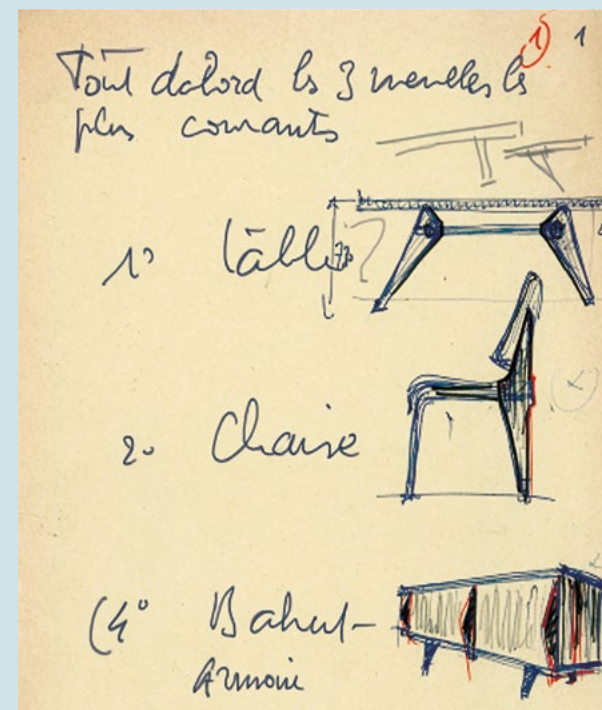 1) 1
Tout dabord les 3 meubles les
plus courants
1° table
?
2° Chaise
(4° Bahut-
Armoire